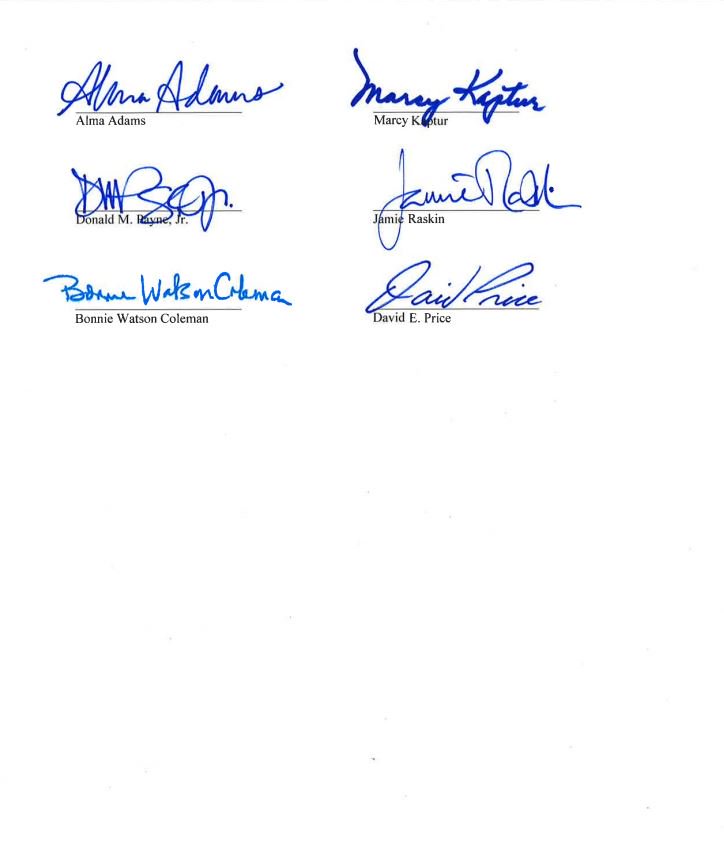 Alma Adams
Alma Adams
Marcy Kaptur
Marcy Kaptur
Donald M. Payne, Jr.
Jamie Raskin
Jamie Raskin
Bonnie Watson Coleman
Bonnie Watson Coleman
David Price
David E. Price